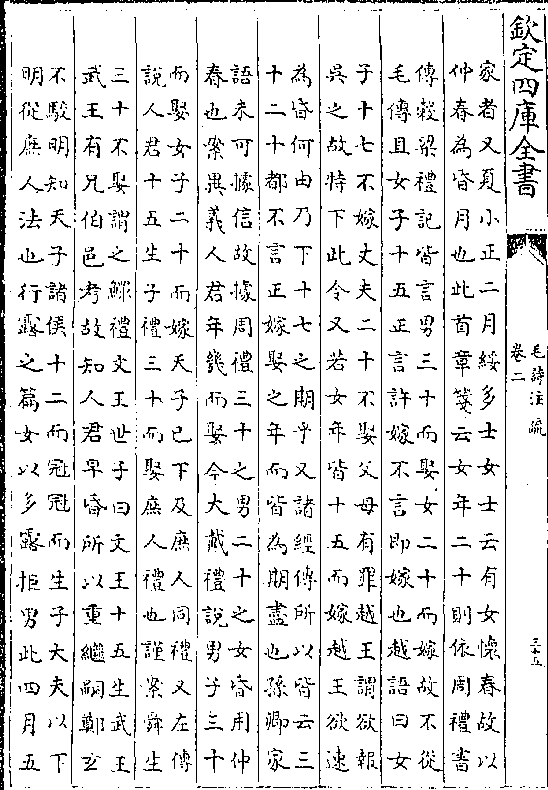 欽定四庫全書
毛詩注疏
卷二
三十五
家者又夏小正二月綏多士女士云有女懷春故以
仲春為昏月也此首章箋云女年二十則依周禮書
傳穀梁禮記皆言男三十而娶女二十而嫁故不從
毛傳且女子十五正言許嫁不言即嫁也越語曰女
子十七不嫁丈夫二十不娶父母有罪越王謂欲報
吳之故特下此令又若女年皆十五而嫁越王欲速
為昏何由乃下十七之期乎又諸經傳所以皆云三
十二十都不言正嫁娶之年而皆為期盡也孫卿家
語未可據信故據周禮三十之男二十之女昏用仲
春也案異義人君年幾而娶今大戴禮說男子三十
而娶女子二十而嫁天子已下及庶人同禮又左傳
說人君十五生子禮三十而娶庶人禮也謹案舜生
三十不娶謂之鰥禮文王世子曰文王十五生武王
武王有兄伯邑考故知人君早昏所以重繼嗣鄭玄
不駁明知天子諸侯十二而冠冠而生子大夫以下
明從庶人法也行露之篇女以多露拒男此四月五